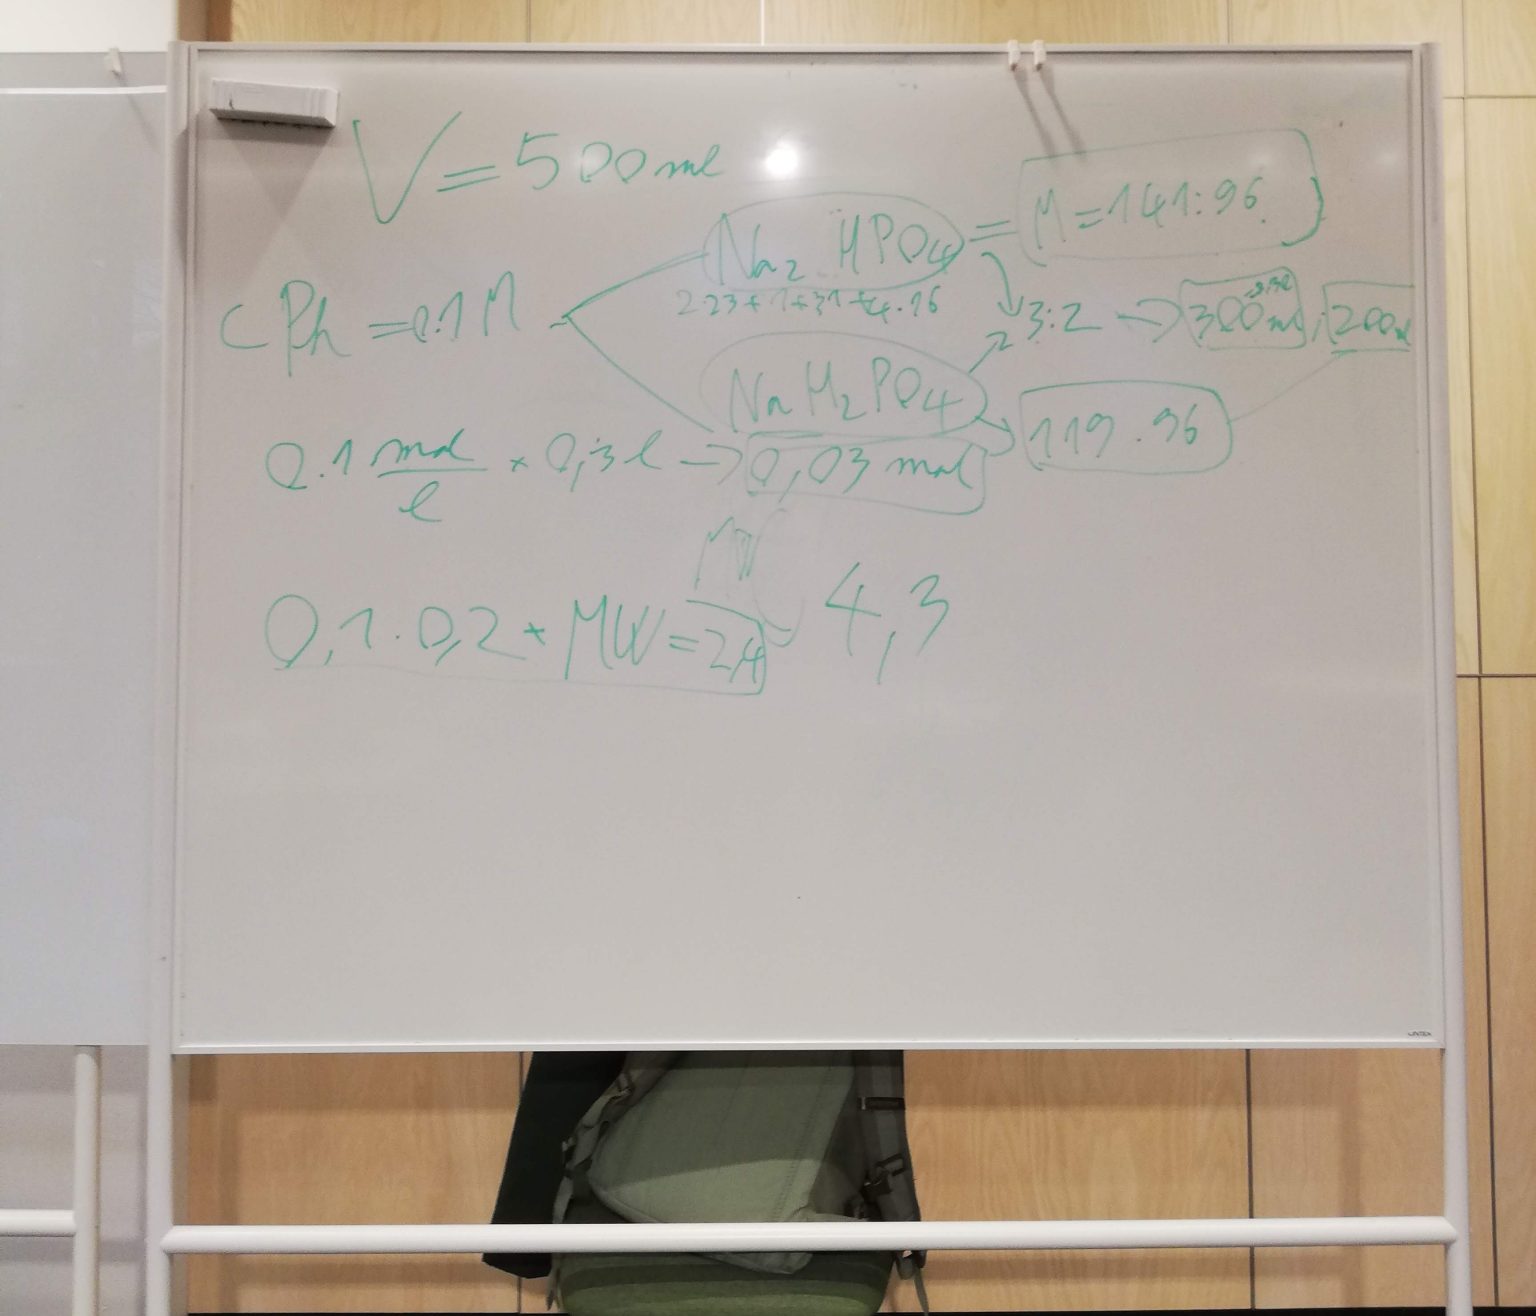 V = 500ml
Na₂ HPO₄ = M = 141.96
2·23+1+31+4·16
CPh = 0.1 M
3:2 → 300ml ; 200ml
NaH₂PO₄
119.96
0.1 mol/l × 0,3 l → 0,03 mol
MW
0,1 · 0,2 * MW = 2,4 4,3